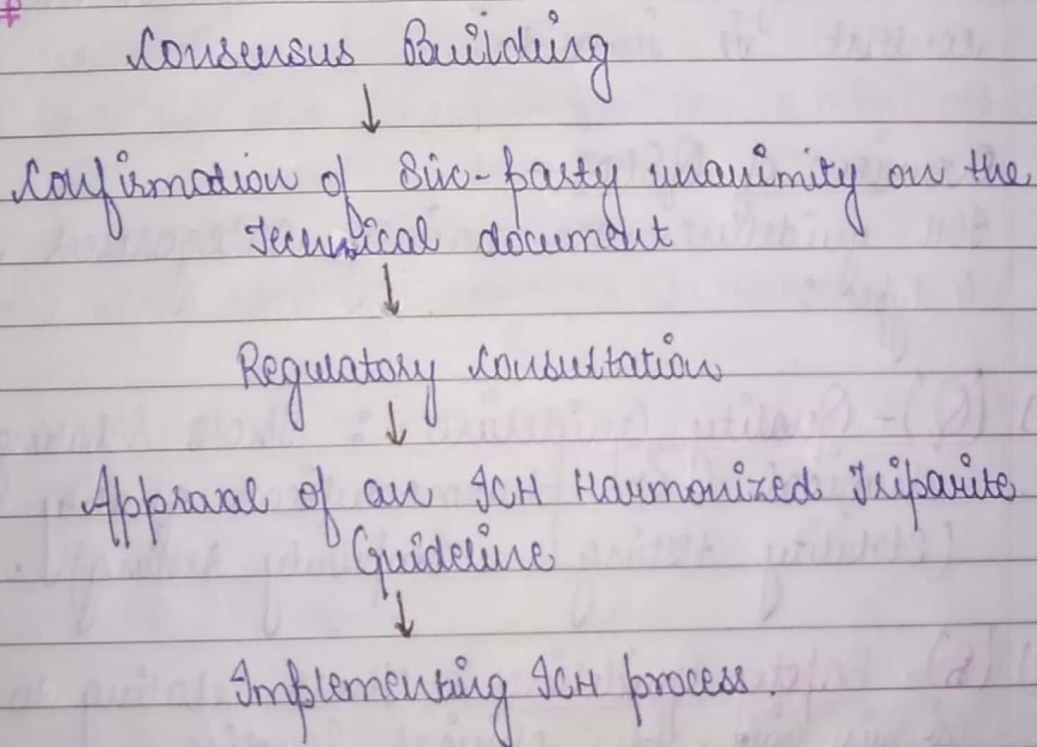 Consensus Building
↓
Confirmation of Six-party unanimity on the
Technical document
↓
Regulatory Consultation
↓
Approval of an ICH Harmonized Triparite
Guideline
↓
Implementing ICH process.